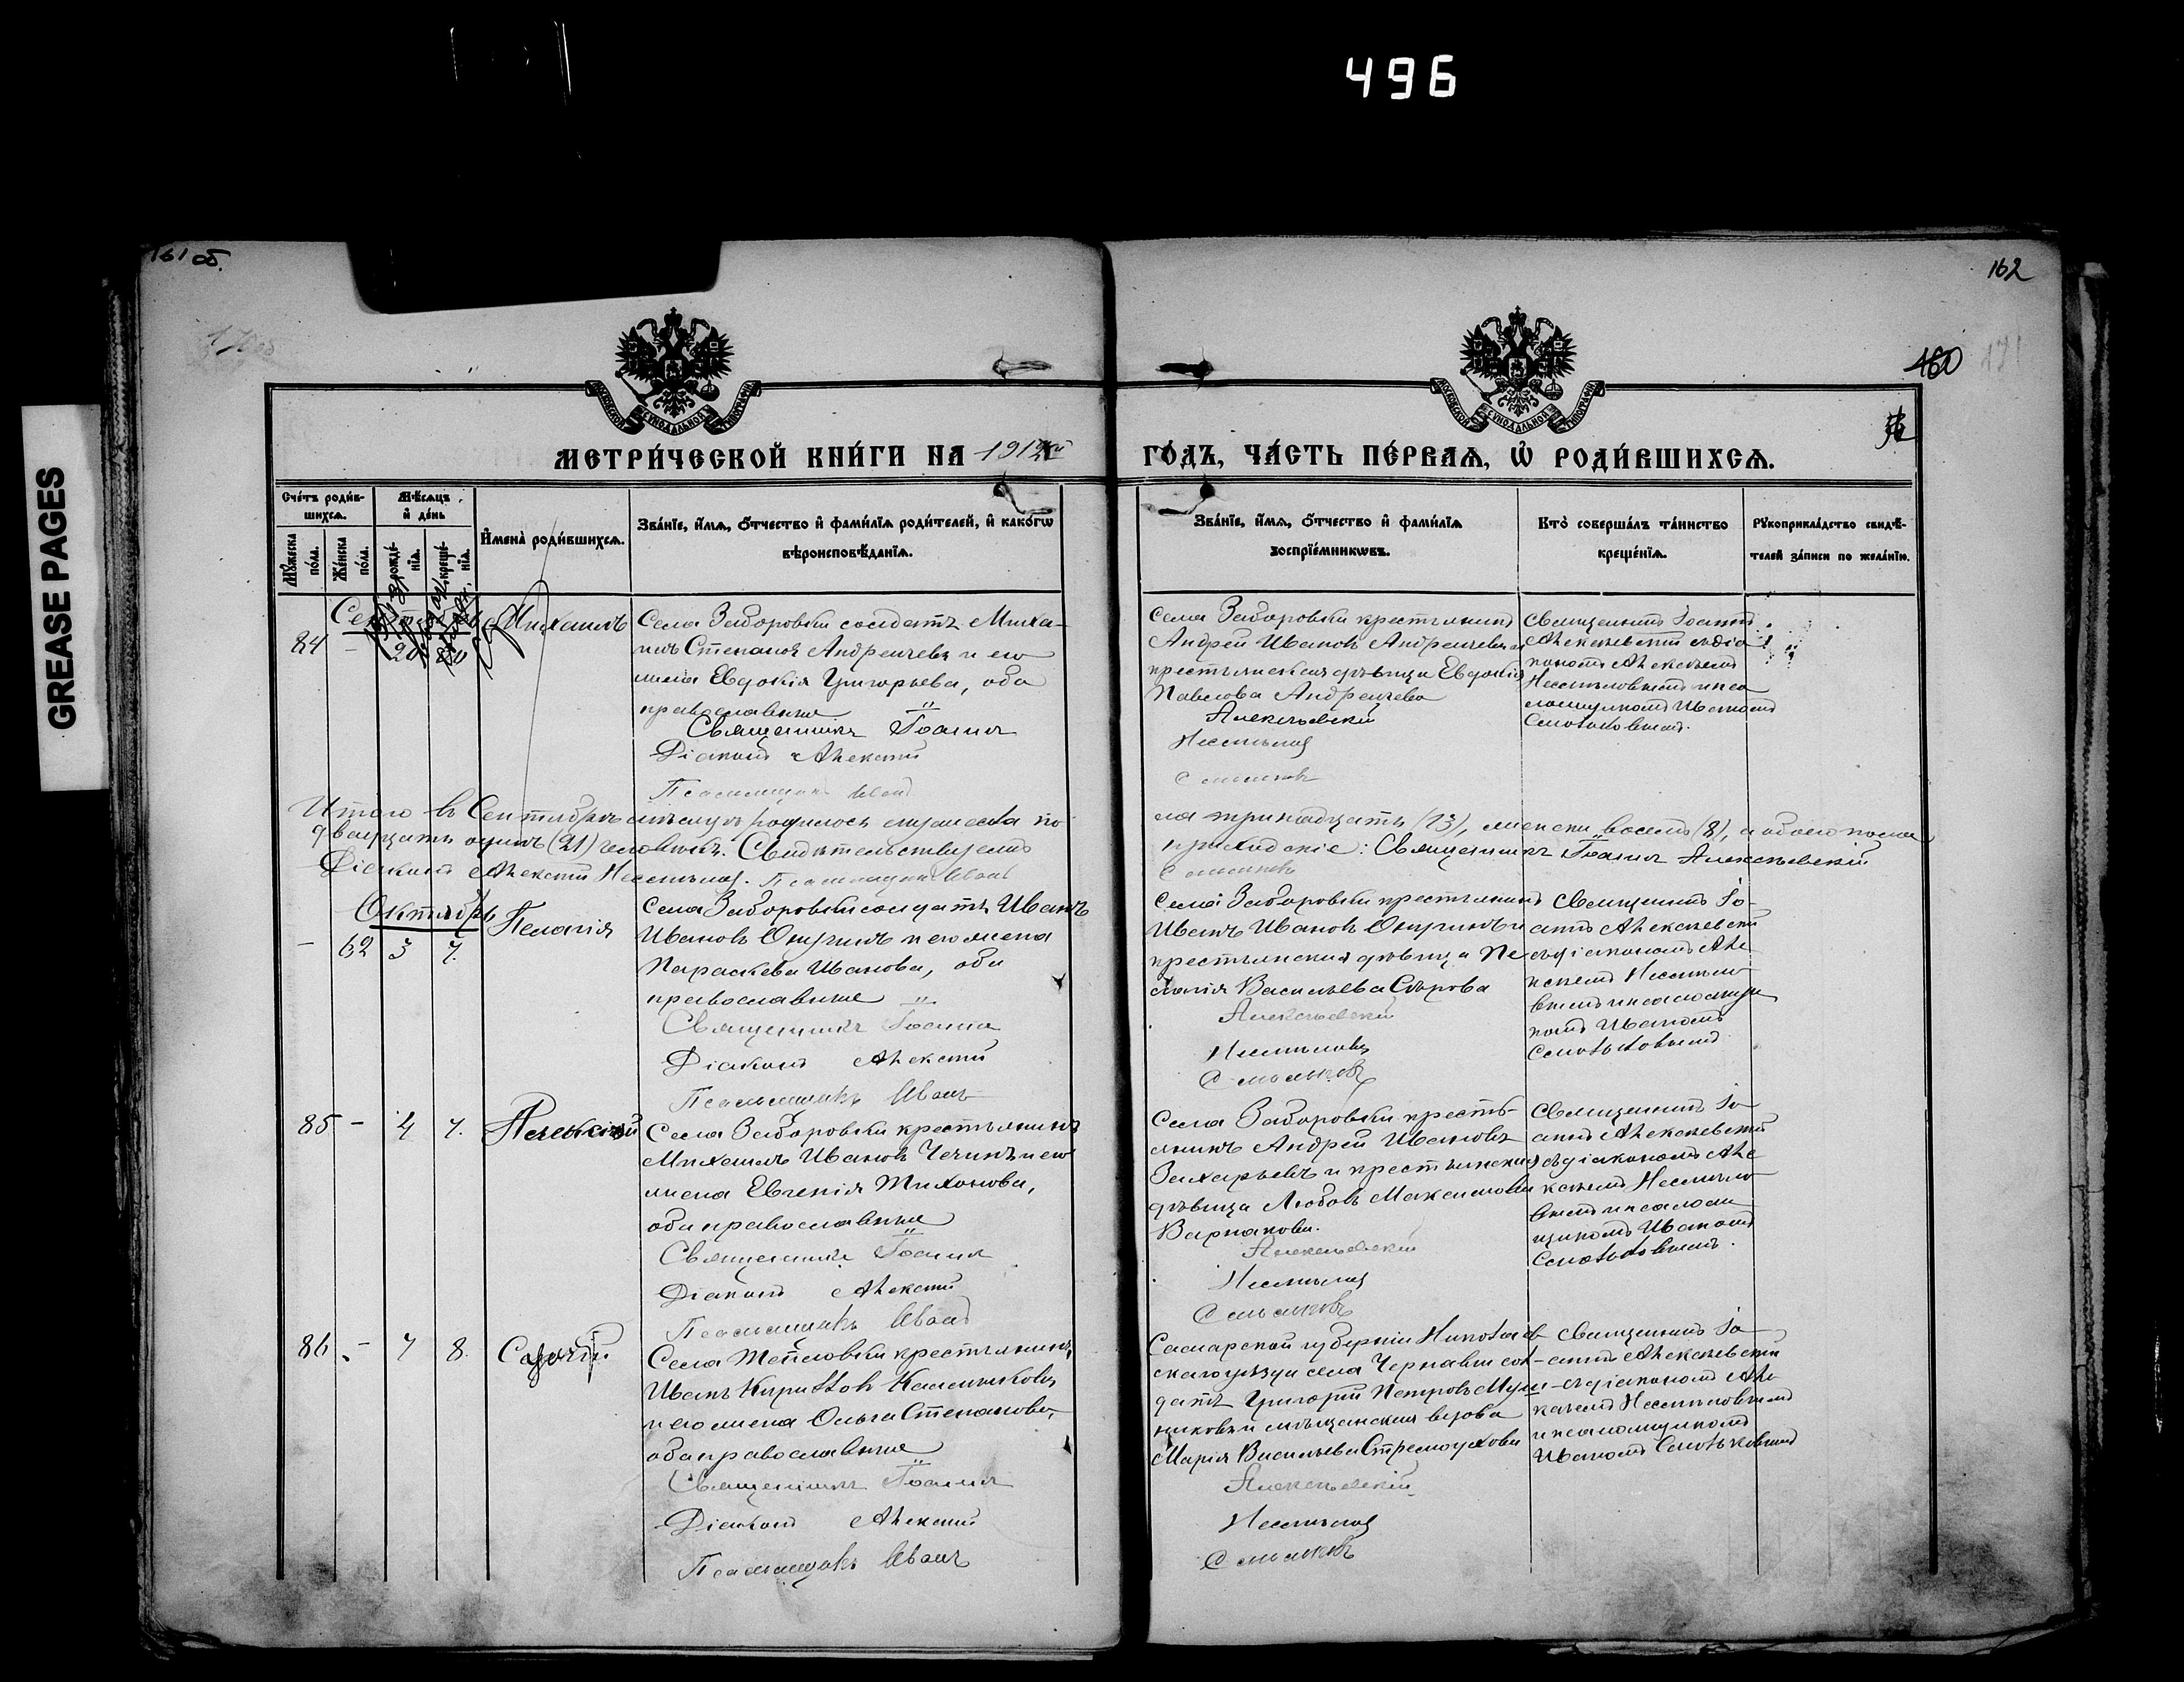 496
161 об.
162
160
GREASE PAGES
МЕТРИ́ЧЕСКОЙ КНИ́ГИ НА 1912й ГО́ДЪ, ЧА́СТЬ ПЕ́РВАѦ, Ѡ҆ РОДИ́ВШИХСѦ.
Сче́тъ роди́в-
шихсѧ.
Мꙋ́жеска по́ла.
Же́нска по́ла.
Мѣ́сѧцъ
и҆ де́нь
рожде́-
нїѧ.
креще́-
нїѧ.
И҆мена̀ роди́вшихсѧ.
Зва́нїе, и҆́мѧ, ѻ҆́тчество и҆ фами́лїѧ роди́телей, и҆ како́гѡ
вѣроисповѣ́данїѧ.
Зва́нїе, и҆́мѧ, ѻ҆́тчество и҆ фами́лїѧ
воспрїе́мникѡвъ.
Кто̀ соверша́лъ та́инство
креще́нїѧ.
Рꙋкоприкла́дство свидѣ́-
телей за́писи по жела́нїю.
84 - Михаилъ
Села Заборовки солдатъ Миха-
илъ Степановъ Андреичевъ и его
жена Евдокія Григорьева, оба
православные
Священникъ Іоаннъ
Діаконъ Алексій
Псаломщикъ Иванъ
Села Заборовки крестьянинъ
Андрей Ивановъ Андреичевъ и
крестьянская дѣвица Евдокія
Павлова Андреичева
Алексѣевскій
Несмѣловъ
Смольковъ
Священникъ Іоаннъ
Алексѣевскій съ діа
кономъ Алексѣемъ
Несмѣловымъ и пса
ломщикомъ Иваномъ
Смольковымъ.
Итого въ Сентябрѣ мѣсяцѣ родилось мужеска по
ла тринадцать (13), женска восемь (8), а обоего пола
двадцать одинъ (21) человѣкъ. Свидѣтельствуемъ
приходскіе: Священникъ Іоаннъ Алексѣевскій
Діаконъ Алексій Несмѣловъ. Псаломщикъ Иванъ
Смольковъ
Октябрь
- 62 3 7. Пелагія
Села Заборовки солдатъ Иванъ
Ивановъ Окунинъ и его жена
Параскева Иванова, оба
православные
Священникъ Іоаннъ
Діаконъ Алексій
Псаломщикъ Иванъ
Села Заборовки крестьянинъ
Иванъ Ивановъ Окунинъ и
крестьянская дѣвица Пе
лагія Васильева Сѣрова
Алексѣевскій
Несмѣловъ
Смольковъ
Священникъ Іо-
аннъ Алексѣевскій
съ діакономъ Але
ксѣемъ Несмѣло
вымъ и псаломщи
комъ Иваномъ
Смольковымъ
85 - 4 7.
Села Заборовки крестьянинъ
Михаилъ Ивановъ Чечинъ и его
жена Евгенія Тихонова,
оба православные
Священникъ Іоаннъ
Діаконъ Алексій
Псаломщикъ Иванъ
Села Заборовки кресть-
янинъ Андрей Ивановъ
Захарьевъ и крестьянская
дѣвица Любовь Максимова
Варнакова.
Алексѣевскій
Несмѣловъ
Смольковъ
Священникъ Іо
аннъ Алексѣевскій
съ діакономъ Але
ксѣемъ Несмѣло
вымъ и псалом
щикомъ Иваномъ
Смольковымъ.
86 - 7 8.
Села Тепловки крестьянинъ
Иванъ Кирилловъ Калашниковъ
и его жена Ольга Степанова,
оба православные
Священникъ Іоаннъ
Діаконъ Алексій
Псаломщикъ Иванъ
Самарской губерніи Николаев
скаго уѣзда села Чернавы сол-
датъ Григорій Петровъ
и мѣщанская вдова
Марія Васильева Стремоухова
Алексѣевскій
Несмѣловъ
Смольковъ
Священникъ Іо
аннъ Алексѣевскій
съ діакономъ Але
ксѣемъ Несмѣловымъ
и псаломщикомъ
Иваномъ Смольковымъ